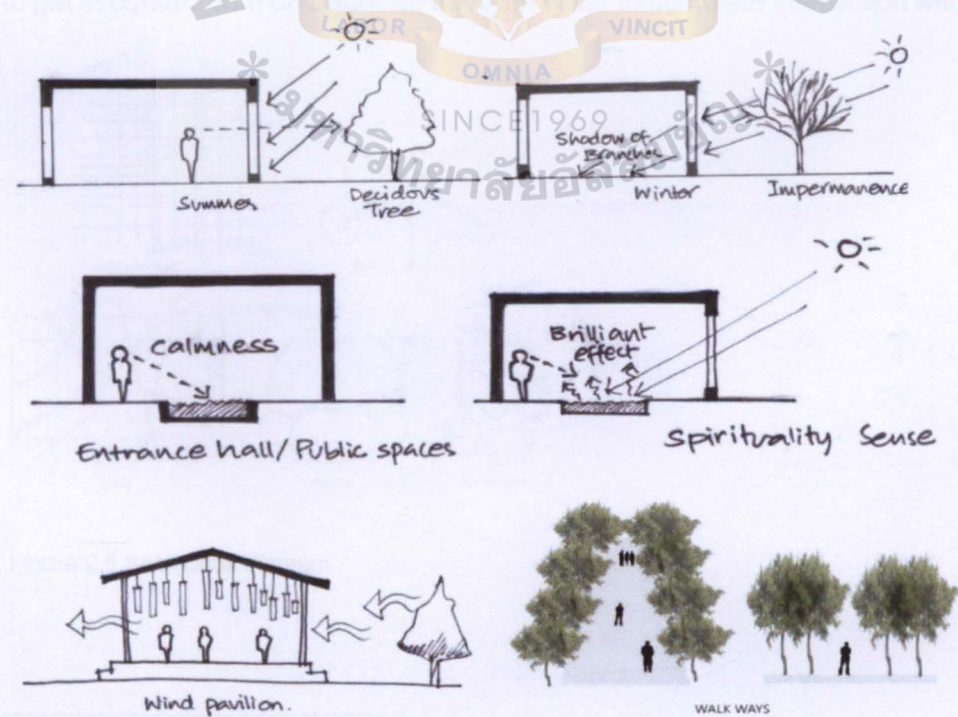 LABOR
VINCIT
OMNIA
SINCE 1969
มหาวิทยาลัยอัสสัมชัญ
Summer
Decidovs
Tree
Shadow of
Branches
Winter
Impermanence
Calmness
Entrance hall/Public spaces
Brilliant
effect
Spirituality Sense
Wind pavilion.
WALK WAYS